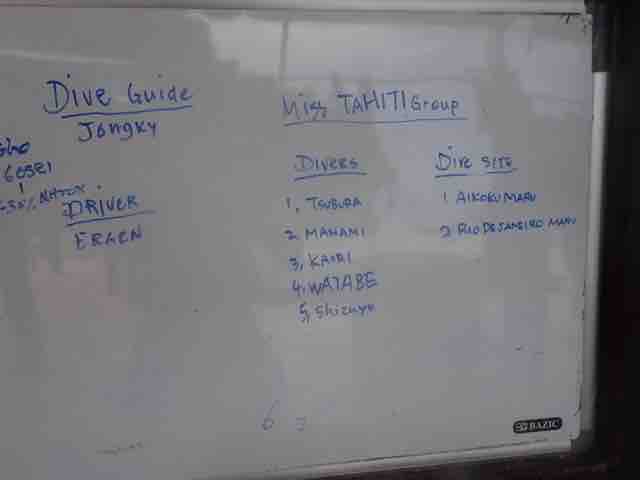 Dive Guide
Jongky
DRIVER
ERGEN
Miss TAHITI Group
DIVERS
1, TSUBURA
2 MANAMI
3, KAORI
4, WATABE
5, Shizuyo
DIVE SITE
1 AIKOKU MARU
2 RIO DE JANEIRO MARU
BAZIC